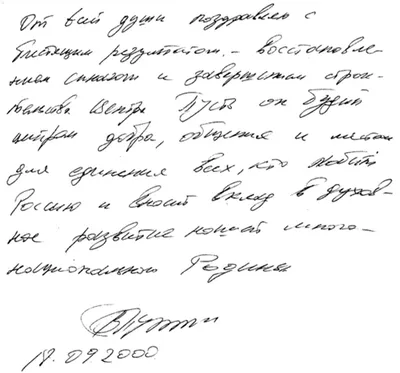 От всей души поздравляю с
блестящим результатом – восстановле-
нием синагоги и завершением строи-
тельства Центра Пусть он будет
центром добра, общения и местом
для единения всех, кто любит
Россию и вносит вклад в духов-
ное развитие нашей много-
национальной Родины
В Путин
18.09 2000